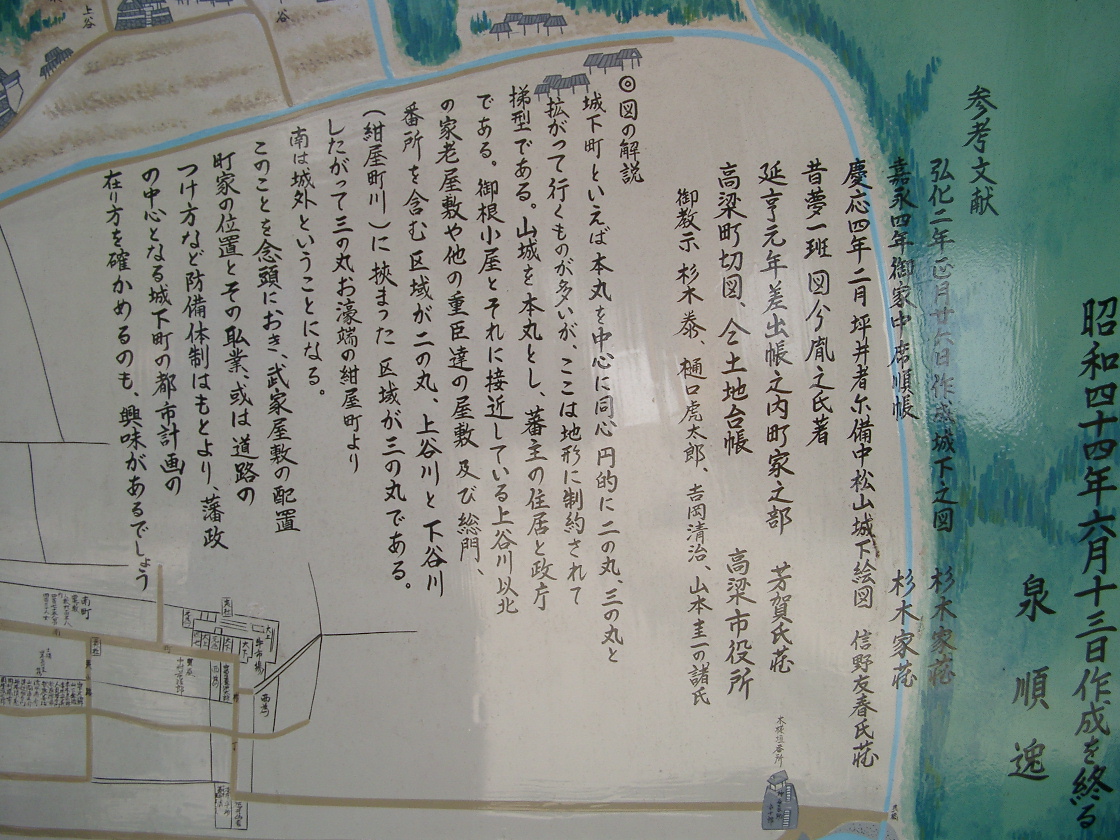 昭和四十四年六月十三日作成を終る
泉 順逸
参考文献
弘化二年正月廿六日作成城下之図 杉木家蔵
嘉永四年御家中席順帳 杉木家蔵
慶応四年二月坪井者尓備中松山城下絵図 信野友春氏蔵
昔夢一班 図今胤之氏著
延亨元年差出帳之内町家之部 芳賀氏蔵
高梁町切図、仝土地台帳 高梁市役所
御教示 杉木泰、樋口虎太郎、吉岡清治、山本圭一の諸氏
◎図の解説
城下町といえば本丸を中心に同心円的に二の丸、三の丸と
拡がって行くものが多いが、ここは地形に制約されて
梯型である。山城を本丸とし、蕃主の住居と政庁
である。御根小屋とそれに接近している上谷川以北
の家老屋敷や他の重臣達の屋敷及び総門、
番所を含む区域が二の丸、上谷川と下谷川
(紺屋町川)に挾まった区域が三の丸である。
したがって三の丸お濠端の紺屋町より
南は城外ということになる。
このことを念頭におき、武家屋敷の配置
町家の位置とその職業、或は道路の
つけ方など防備体制はもとより、藩政
の中心となる城下町の都市計画の
在り方を確かめるのも、興味があるでしょう
上谷
南町
牛市場